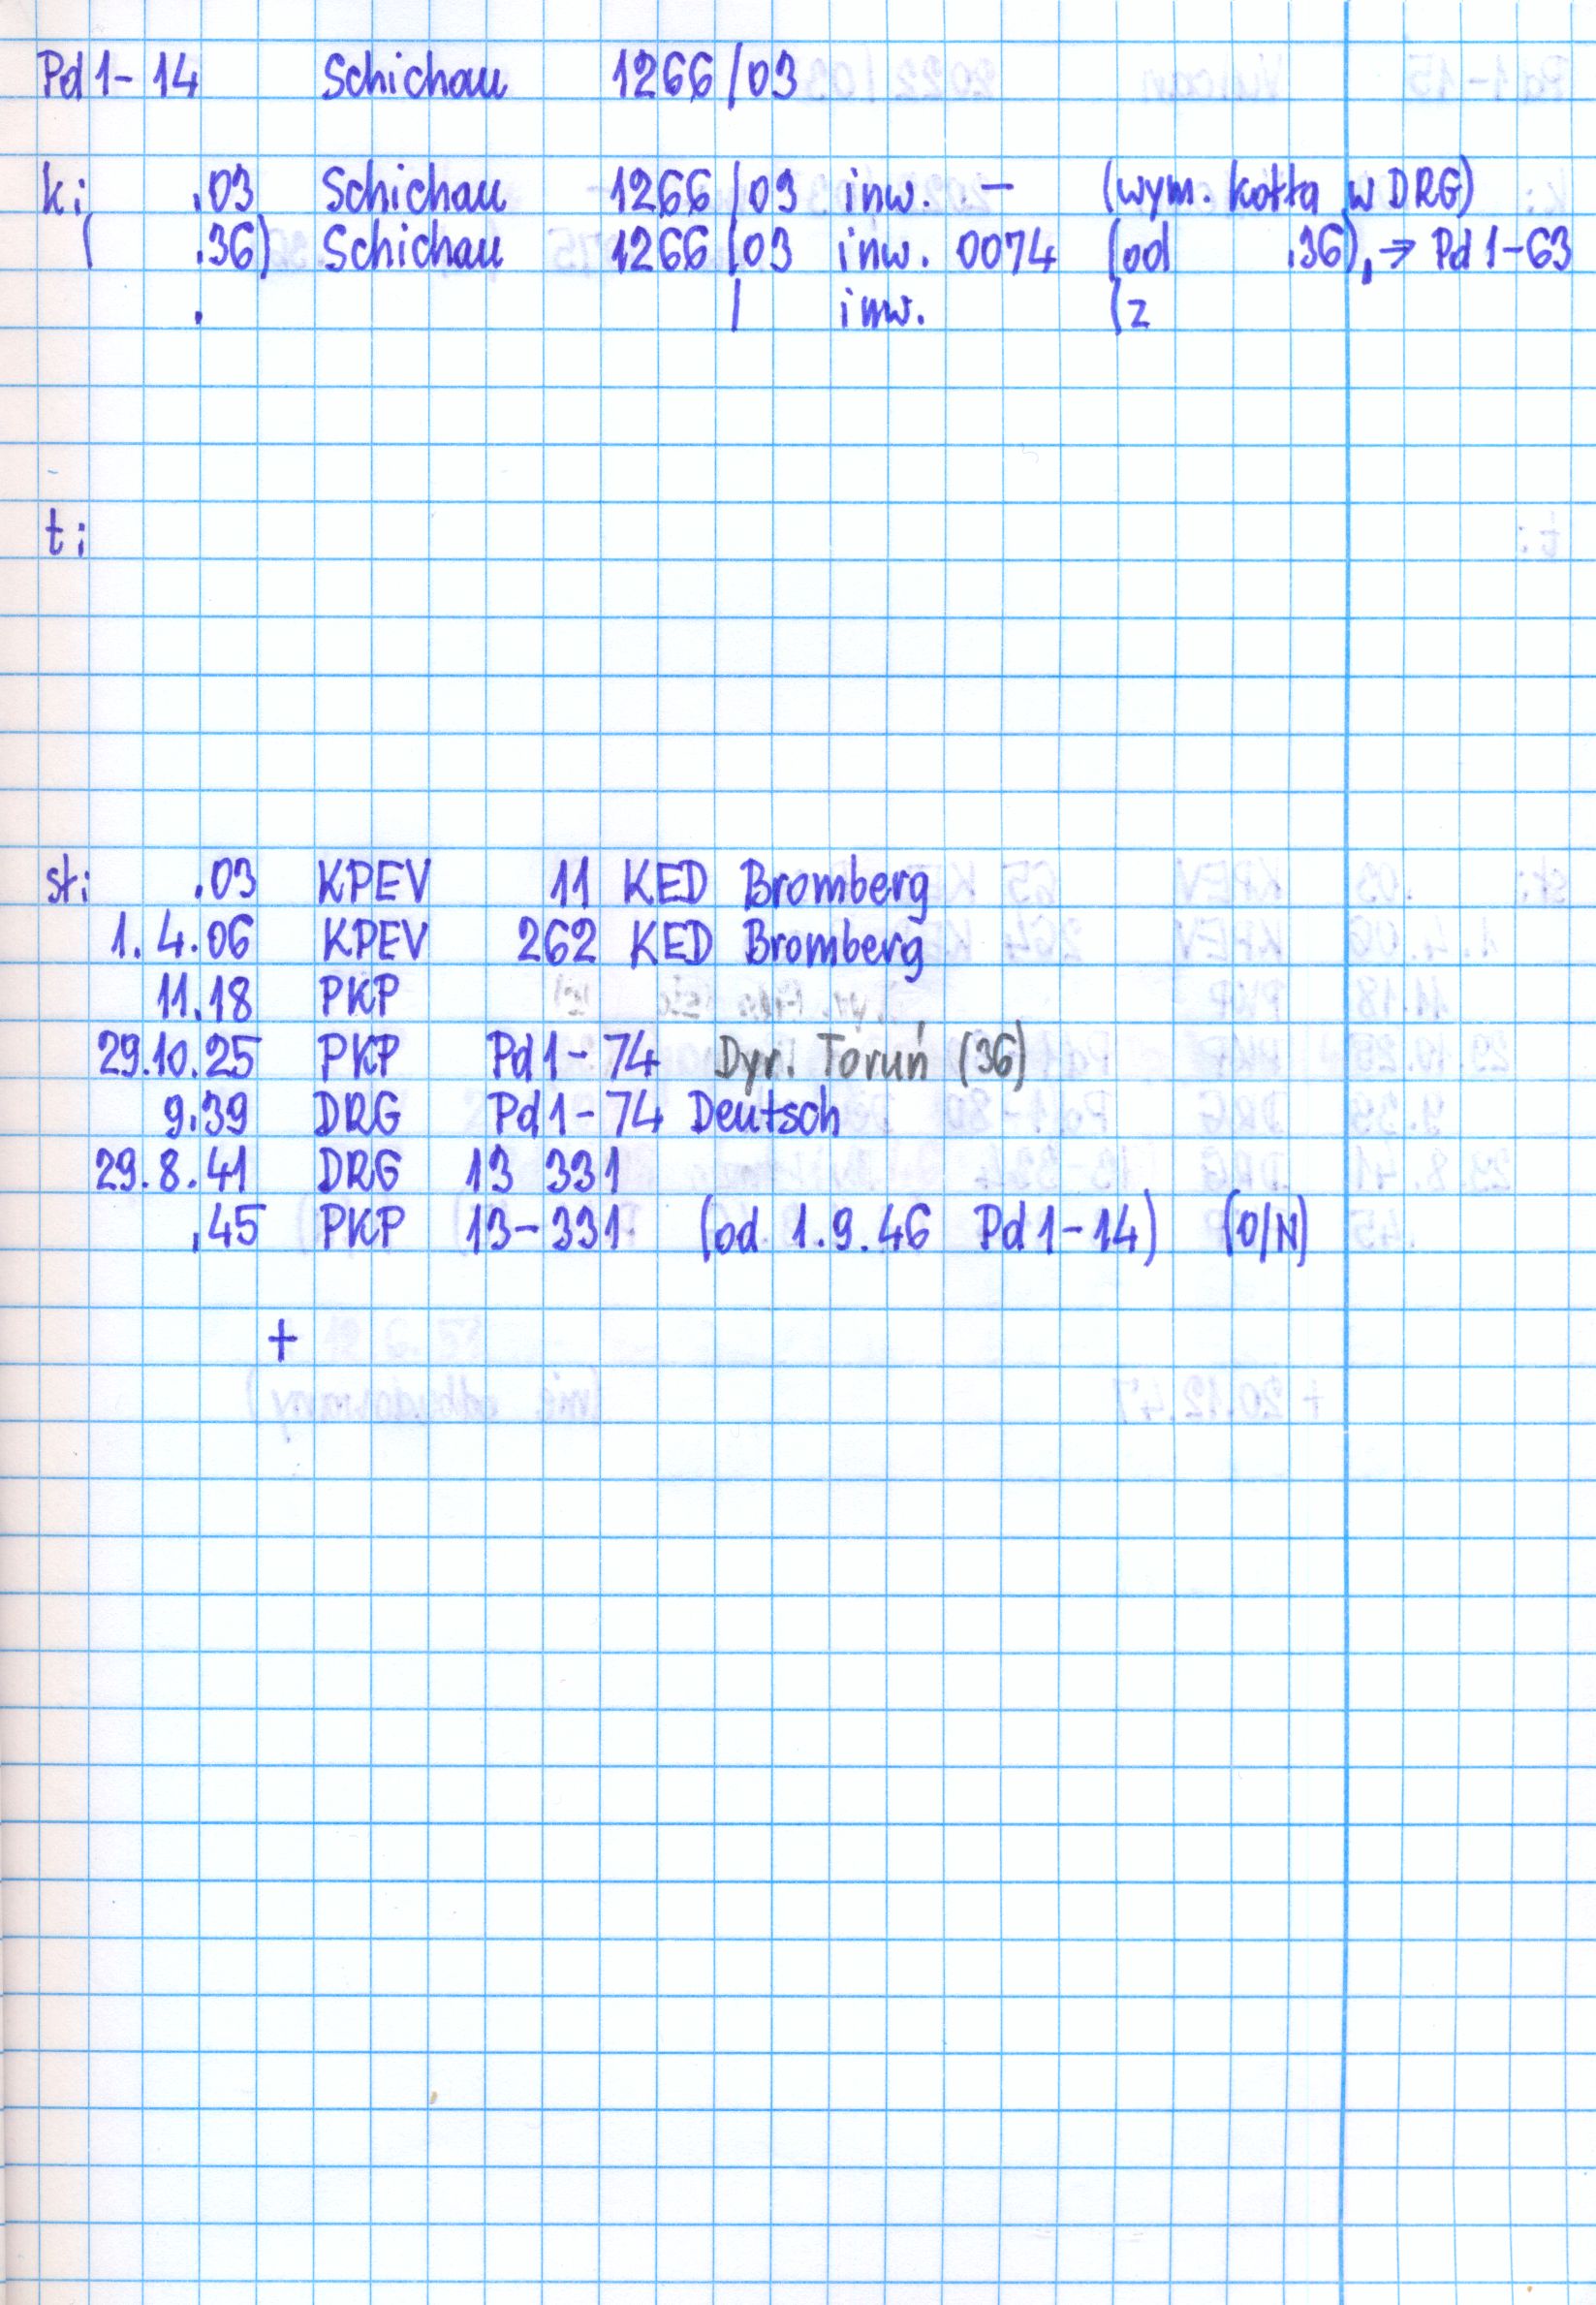 Pd1-14 Schichau 1266/03
k: .03 Schichau 1266/03 inw. - (wym. kotła w DRG)
( .36) Schichau 1266/03 inw. 0074 (od .36), → Pd1-63
. / inw. (z
t:
st: .03 KPEV 11 KED Bromberg
1.4.06 KPEV 262 KED Bromberg
11.18 PKP
29.10.25 PKP Pd1-74 Dyr. Toruń (36)
9.39 DRG Pd1-74 Deutsch
29.8.41 DRG 13 331
.45 PKP 13-331 (od 1.9.46 Pd1-14) (O/N)
+